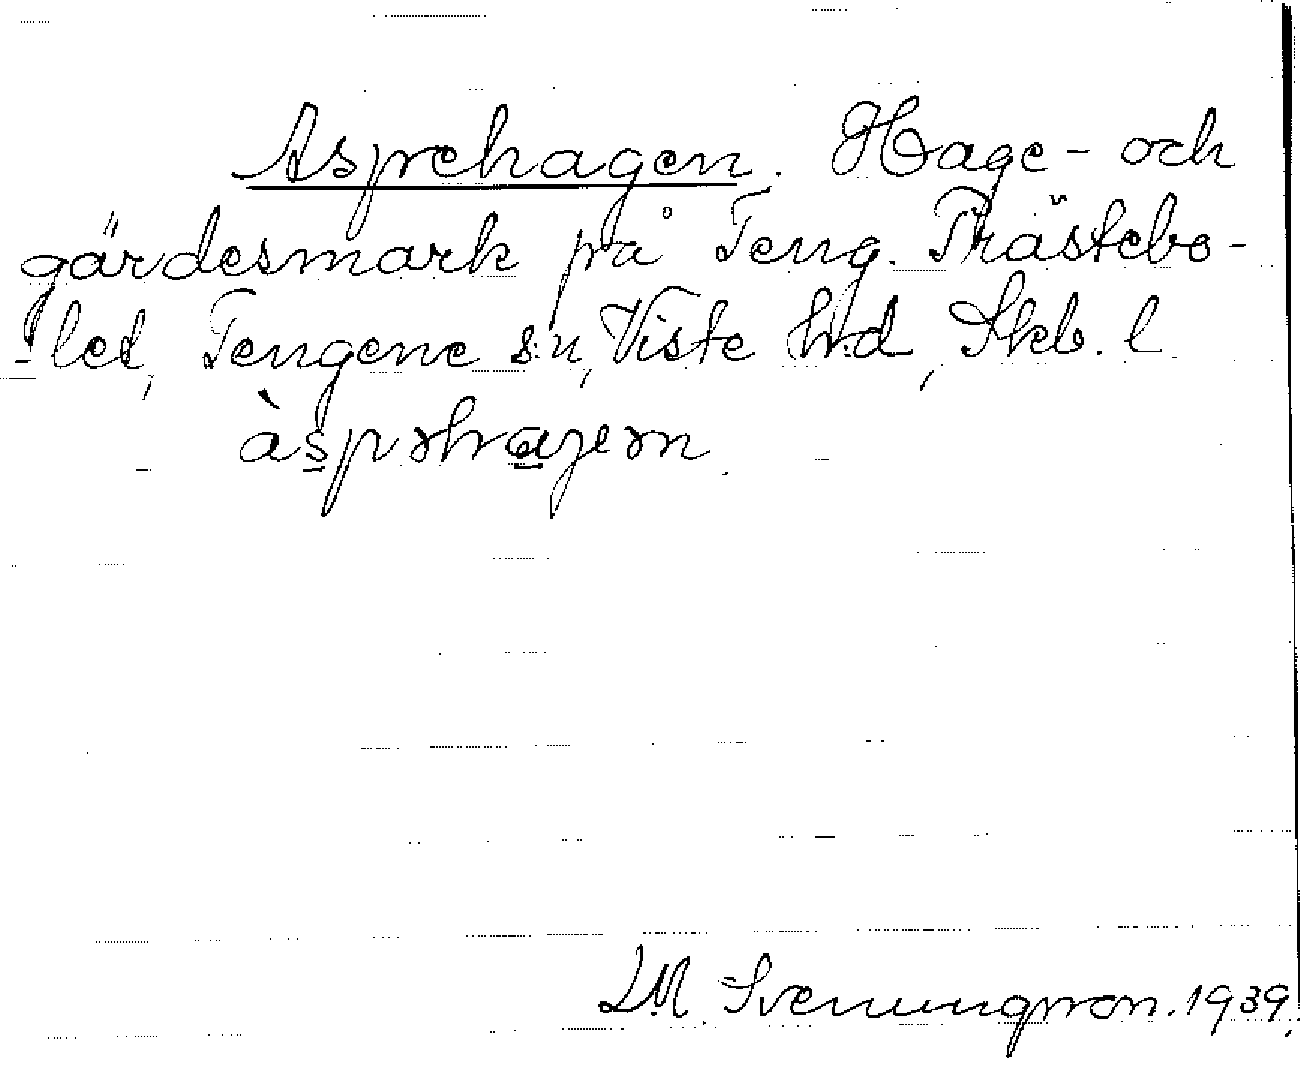 Asprehagen. Hage- och
gärdesmark på Teng. Prästebo-
-let, Tengene s:n, Viste h:d, Skb. l
àspəhagen
D.M. Svenungsson. 1939.